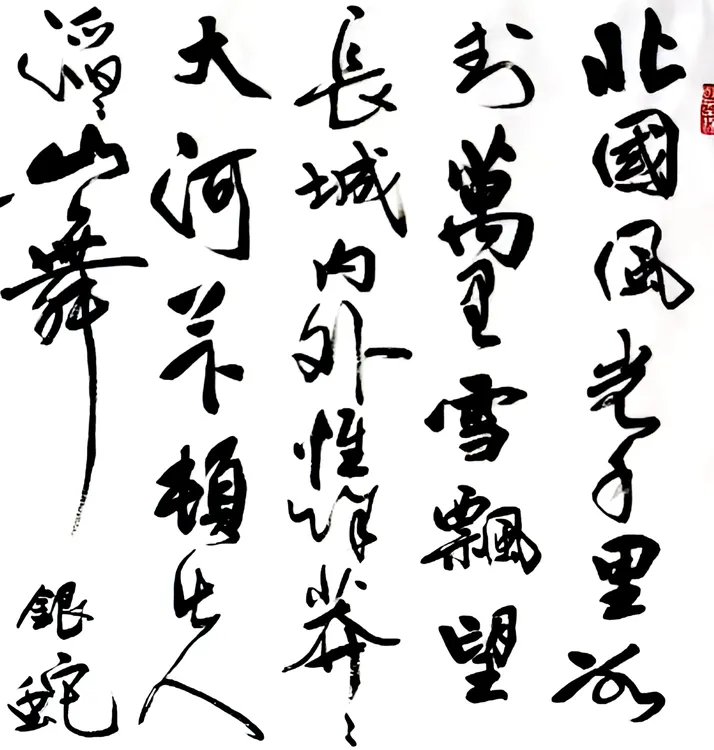 北國風光千里冰
封萬里雪飄望
長城内外惟餘莽〻
大河上下頓失
滔〻山舞銀蛇